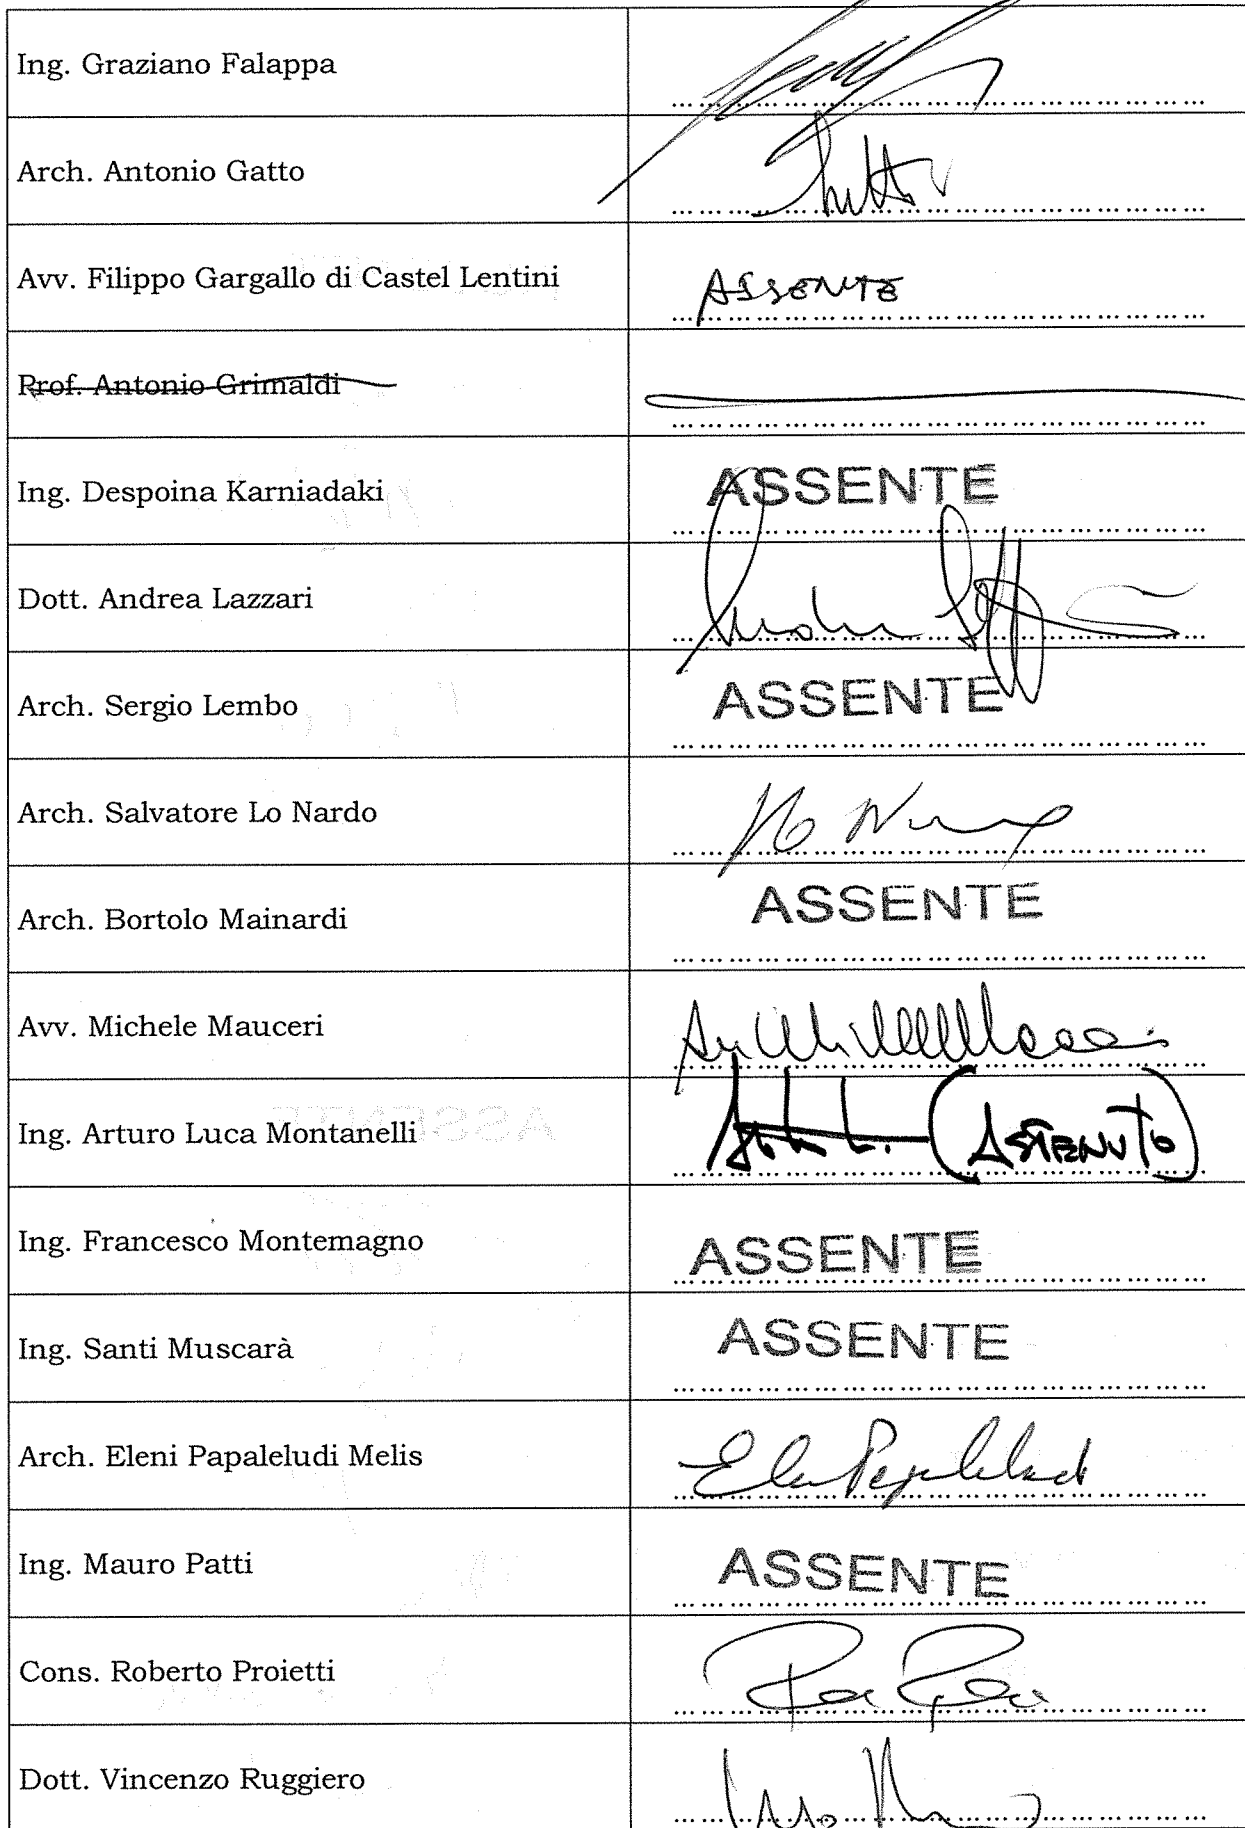 Ing. Graziano Falappa
Arch. Antonio Gatto
Avv. Filippo Gargallo di Castel Lentini ASSENTE
Prof. Antonio Grimaldi
Ing. Despoina Karniadaki ASSENTE
Dott. Andrea Lazzari
Arch. Sergio Lembo ASSENTE
Arch. Salvatore Lo Nardo
Arch. Bortolo Mainardi ASSENTE
Avv. Michele Mauceri
Ing. Arturo Luca Montanelli (ASTENUTO)
Ing. Francesco Montemagno ASSENTE
Ing. Santi Muscarà ASSENTE
Arch. Eleni Papaleludi Melis
Ing. Mauro Patti ASSENTE
Cons. Roberto Proietti
Dott. Vincenzo Ruggiero